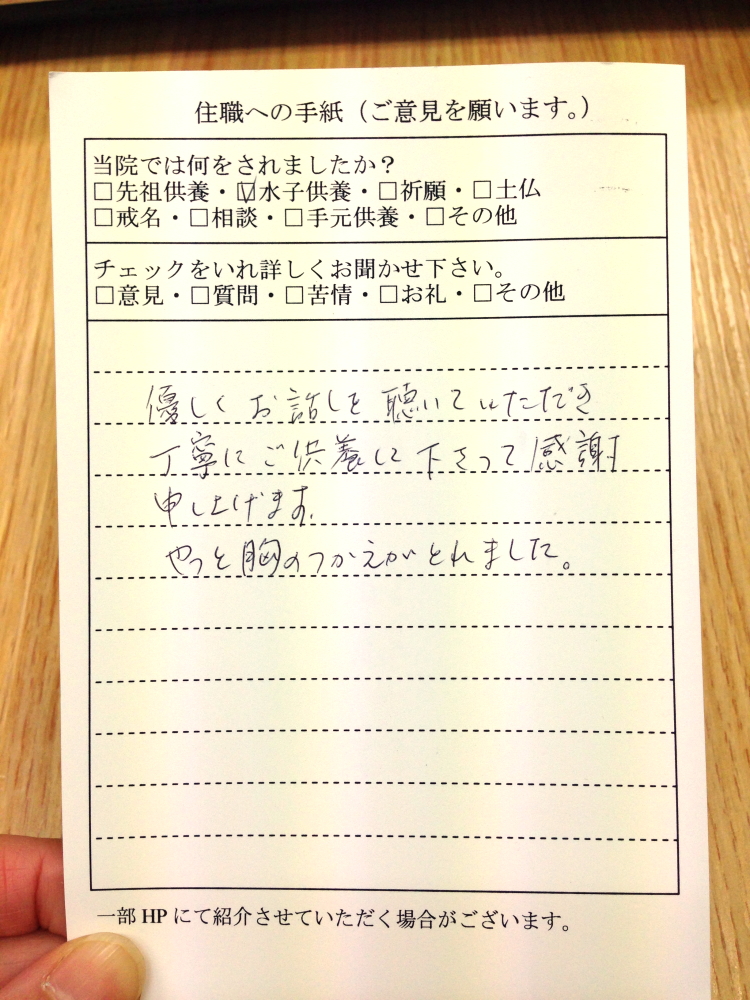 住職への手紙（ご意見を願います。）
当院では何をされましたか？
□先祖供養・☑水子供養・□祈願・□土仏
□戒名・□相談・□手元供養・□その他
チェックをいれ詳しくお聞かせ下さい。
□意見・□質問・□苦情・□お礼・□その他
優しくお話しを聴いていただき
丁寧にご供養して下さって感謝
申し上げます。
やっと胸のつかえがとれました。
一部HPにて紹介させていただく場合がございます。